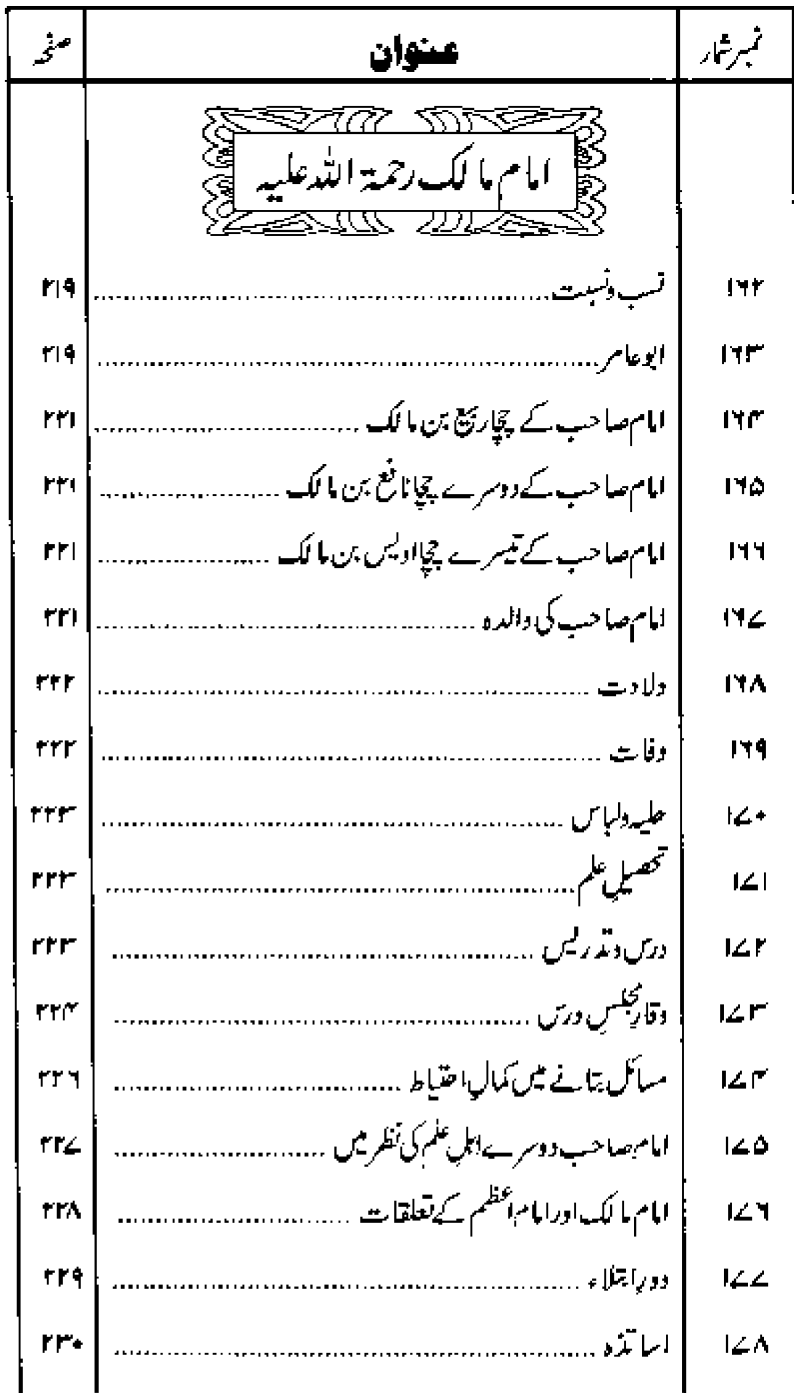 نمبر شمار عنوان صفحہ
امام مالک رحمۃ اللہ علیہ
۱۶۲ نسب ونسبت ۲۱۹
۱۶۳ ابو عامر ۲۱۹
۱۶۴ امام صاحب کے چچا ربیع بن مالک ۲۲۱
۱۶۵ امام صاحب کے دوسرے چچا نافع بن مالک ۲۲۱
۱۶۶ امام صاحب کے تیسرے چچا اویس بن مالک ۲۲۱
۱۶۷ امام صاحب کی والدہ ۲۲۱
۱۶۸ ولادت ۲۲۲
۱۶۹ وفات ۲۲۲
۱۷۰ حلیہ ولباس ۲۲۳
۱۷۱ تحصیلِ علم ۲۲۳
۱۷۲ درس وتدریس ۲۲۳
۱۷۳ وقارِ مجلسِ درس ۲۲۴
۱۷۴ مسائل بتانے میں کمالِ احتیاط ۲۲۶
۱۷۵ امام صاحب دوسرے اہلِ علم کی نظر میں ۲۲۷
۱۷۶ امام مالک اور امام اعظم کے تعلقات ۲۲۸
۱۷۷ دورِ ابتلاء ۲۲۹
۱۷۸ اساتذہ ۲۳۰